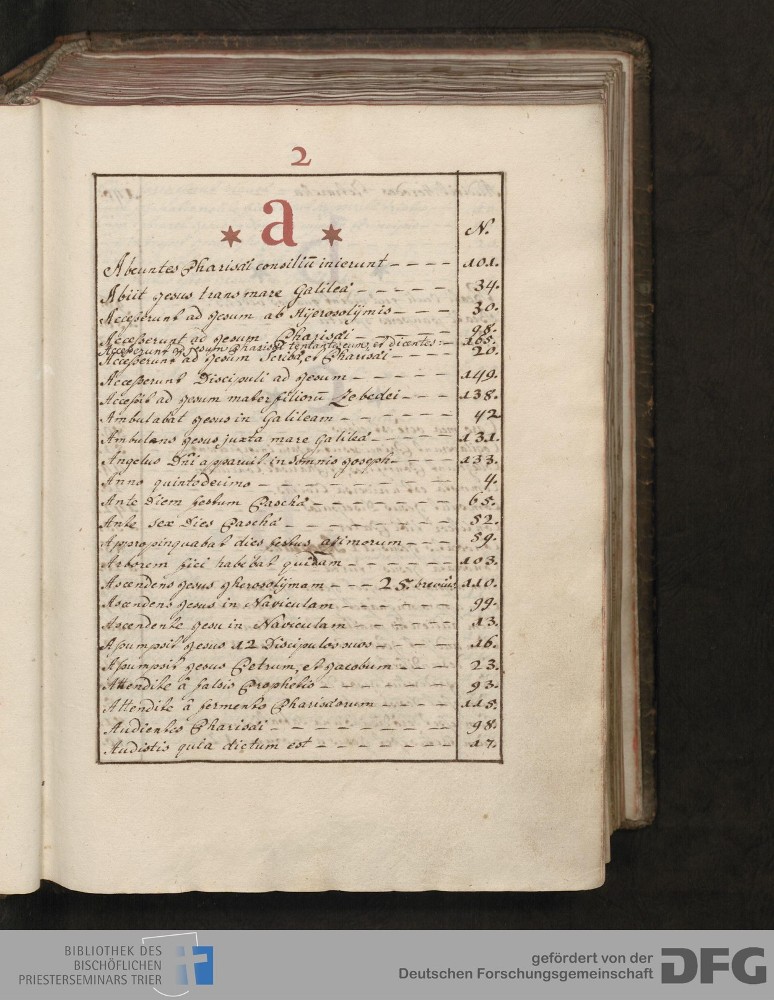 2
* a *
N.
Abeuntes Pharisæi consiliū inierunt - - - - 101.
Abiit Jesus trans mare Galileæ - - - - - 34.
Accesserunt ad Jesum ab Hijerosolÿmis - - - - 30.
Accesserunt ad Jesum Pharisæi - - - - - 98.
Accesserunt ad Jesum Pharisæi tentantes eum, et dicentes: - 165.
Accesserunt ad Jesum Scribæ, et Pharisæi - - - - 20.
Accesserunt Discipuli ad Jesum - - - - - 149.
Accessit ad Jesum mater filiorū Zebedei - - - 138.
Ambulabat Jesus in Galileam - - - - - 42
Ambulans Jesus juxta mare Galileæ - - - - 131.
Angelus Dñi apparuit in somnis Joseph - - - 133.
Anno quintodecimo - - - - - - - 4.
Ante Diem festum Paschæ - - - - - - 65.
Ante sex Dies Paschæ - - - - - - - 52.
Appropinquabat dies festus asimorum - - - 59.
Arborem fici habebat quidam - - - - - 103.
Ascendens Jesus Jherosolÿmam - - - 25. brevius 110.
Ascendens Jesus in Naviculam - - - - - 99.
Ascendente Jesu in Naviculam - - - - - 13.
Assumpsit Jesus 12 Discipulos suos - - - - 16.
Assumpsit Jesus Petrum, et Jacobum - - - 23.
Attendite â falsis Prophetis - - - - - - 93.
Attendite â fermento Pharisæorum - - - - 115.
Audientes Pharisæi - - - - - - - - 98.
Audistis quia dictum est - - - - - - - 17.
BIBLIOTHEK DES
BISCHÖFLICHEN
PRIESTERSEMINARS TRIER
gefördert von der
Deutschen Forschungsgemeinschaft DFG